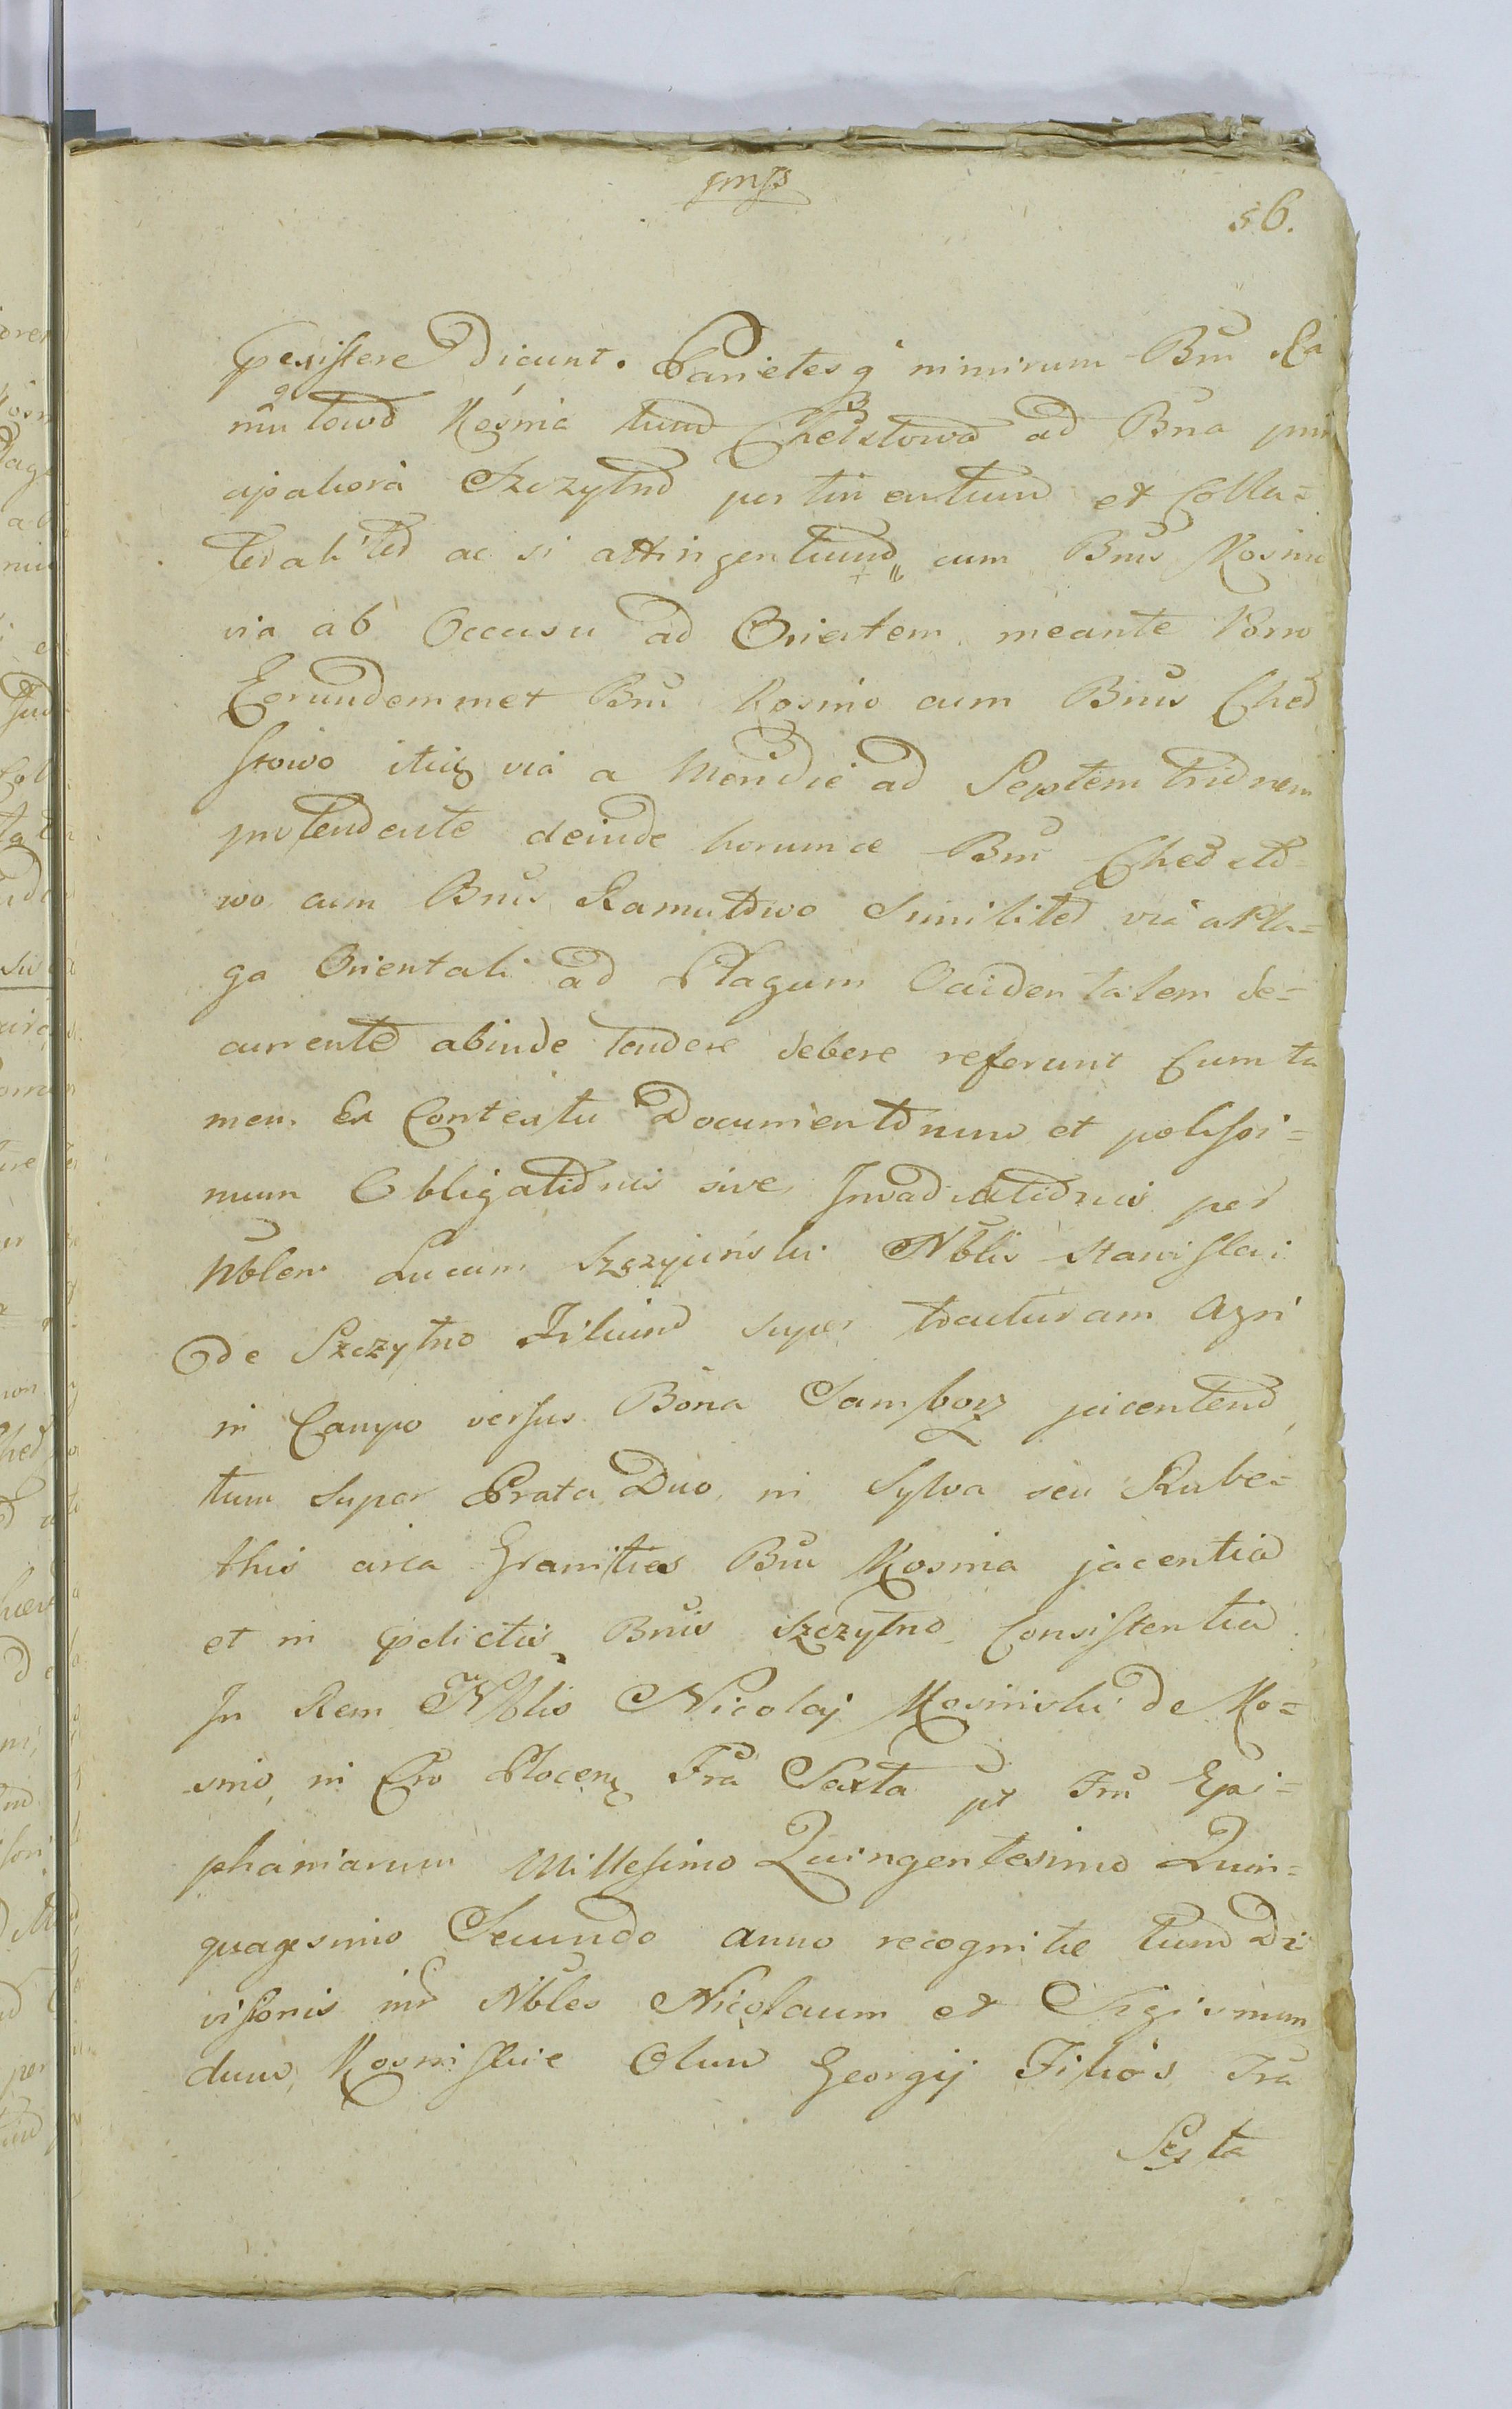 56.
pexistere dicunt. Parietesq nimirum Bnu Ra
mutowo Kosmia tum Chelstowa ad Bna prin
cipaliora Szczytno pertinentium et Colla=
teraliter ac si attingentium cum Bnis Kosmi
via ab Occasu ad Orientem meante Porro
Eorundemmet Bnu Kosmo cum Bnis Chel
stowo itidem via a Meridie ad Septemtrionem
protendente deinde horumce Bnu Chelsto=
wo cum Bnis Ramutowo Similiter via a Pla=
ga Orientali ad Plagam Occidentalem de=
currente abinde tendere debere referunt Cum ta
men Ex Contextu Documentorum et potissi=
mum Obligationis sive Invadiationis per
Nblem Lucam Szczyciński Nblis Stanislai
de Szczytno Filium super tracturam Agri
in Campo versus Bona Samborz jacentem
tum super Prata Duo in Sylva seu Rube=
this circa Granities Bnu Kosmia jacentia
et in pdictis Bnis Szczytno Consistentia
In Rem Nblis Nicolaj Kosmiski de Ko=
smo in Cro Plocen Fra Sexta pt Fm Epi=
phaniarum Millesimo Quingentesimo Quin=
quagesimo Secundo anno recognitae tum Di
visionis intr Nbles Nicolaum et Sigismun
dum Kosmiskie Olim Georgij Filios Fra
Sexta